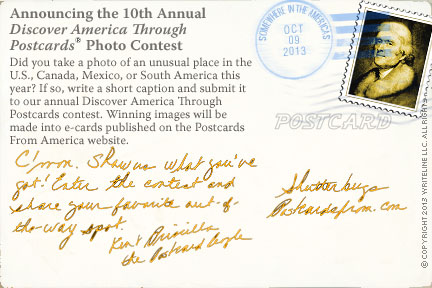 Announcing the 10th Annual
Discover America Through
Postcards® Photo Contest
Did you take a photo of an unusual place in the
U.S., Canada, Mexico, or South America this
year? If so, write a short caption and submit it
to our annual Discover America Through
Postcards contest. Winning images will be
made into e-cards published on the Postcards
From America website.
C'mon. Show us what you've
got! Enter the contest and
share your favorite out-of-
the-way spot.
Priscilla
the Postcard
SOMEWHERE IN THE AMERICAS
OCT
09
2013
POSTCARD
Shutterbugs
Postcardsfrom.com
© COPYRIGHT 2013 WRITELINE LLC. ALL RIGHTS